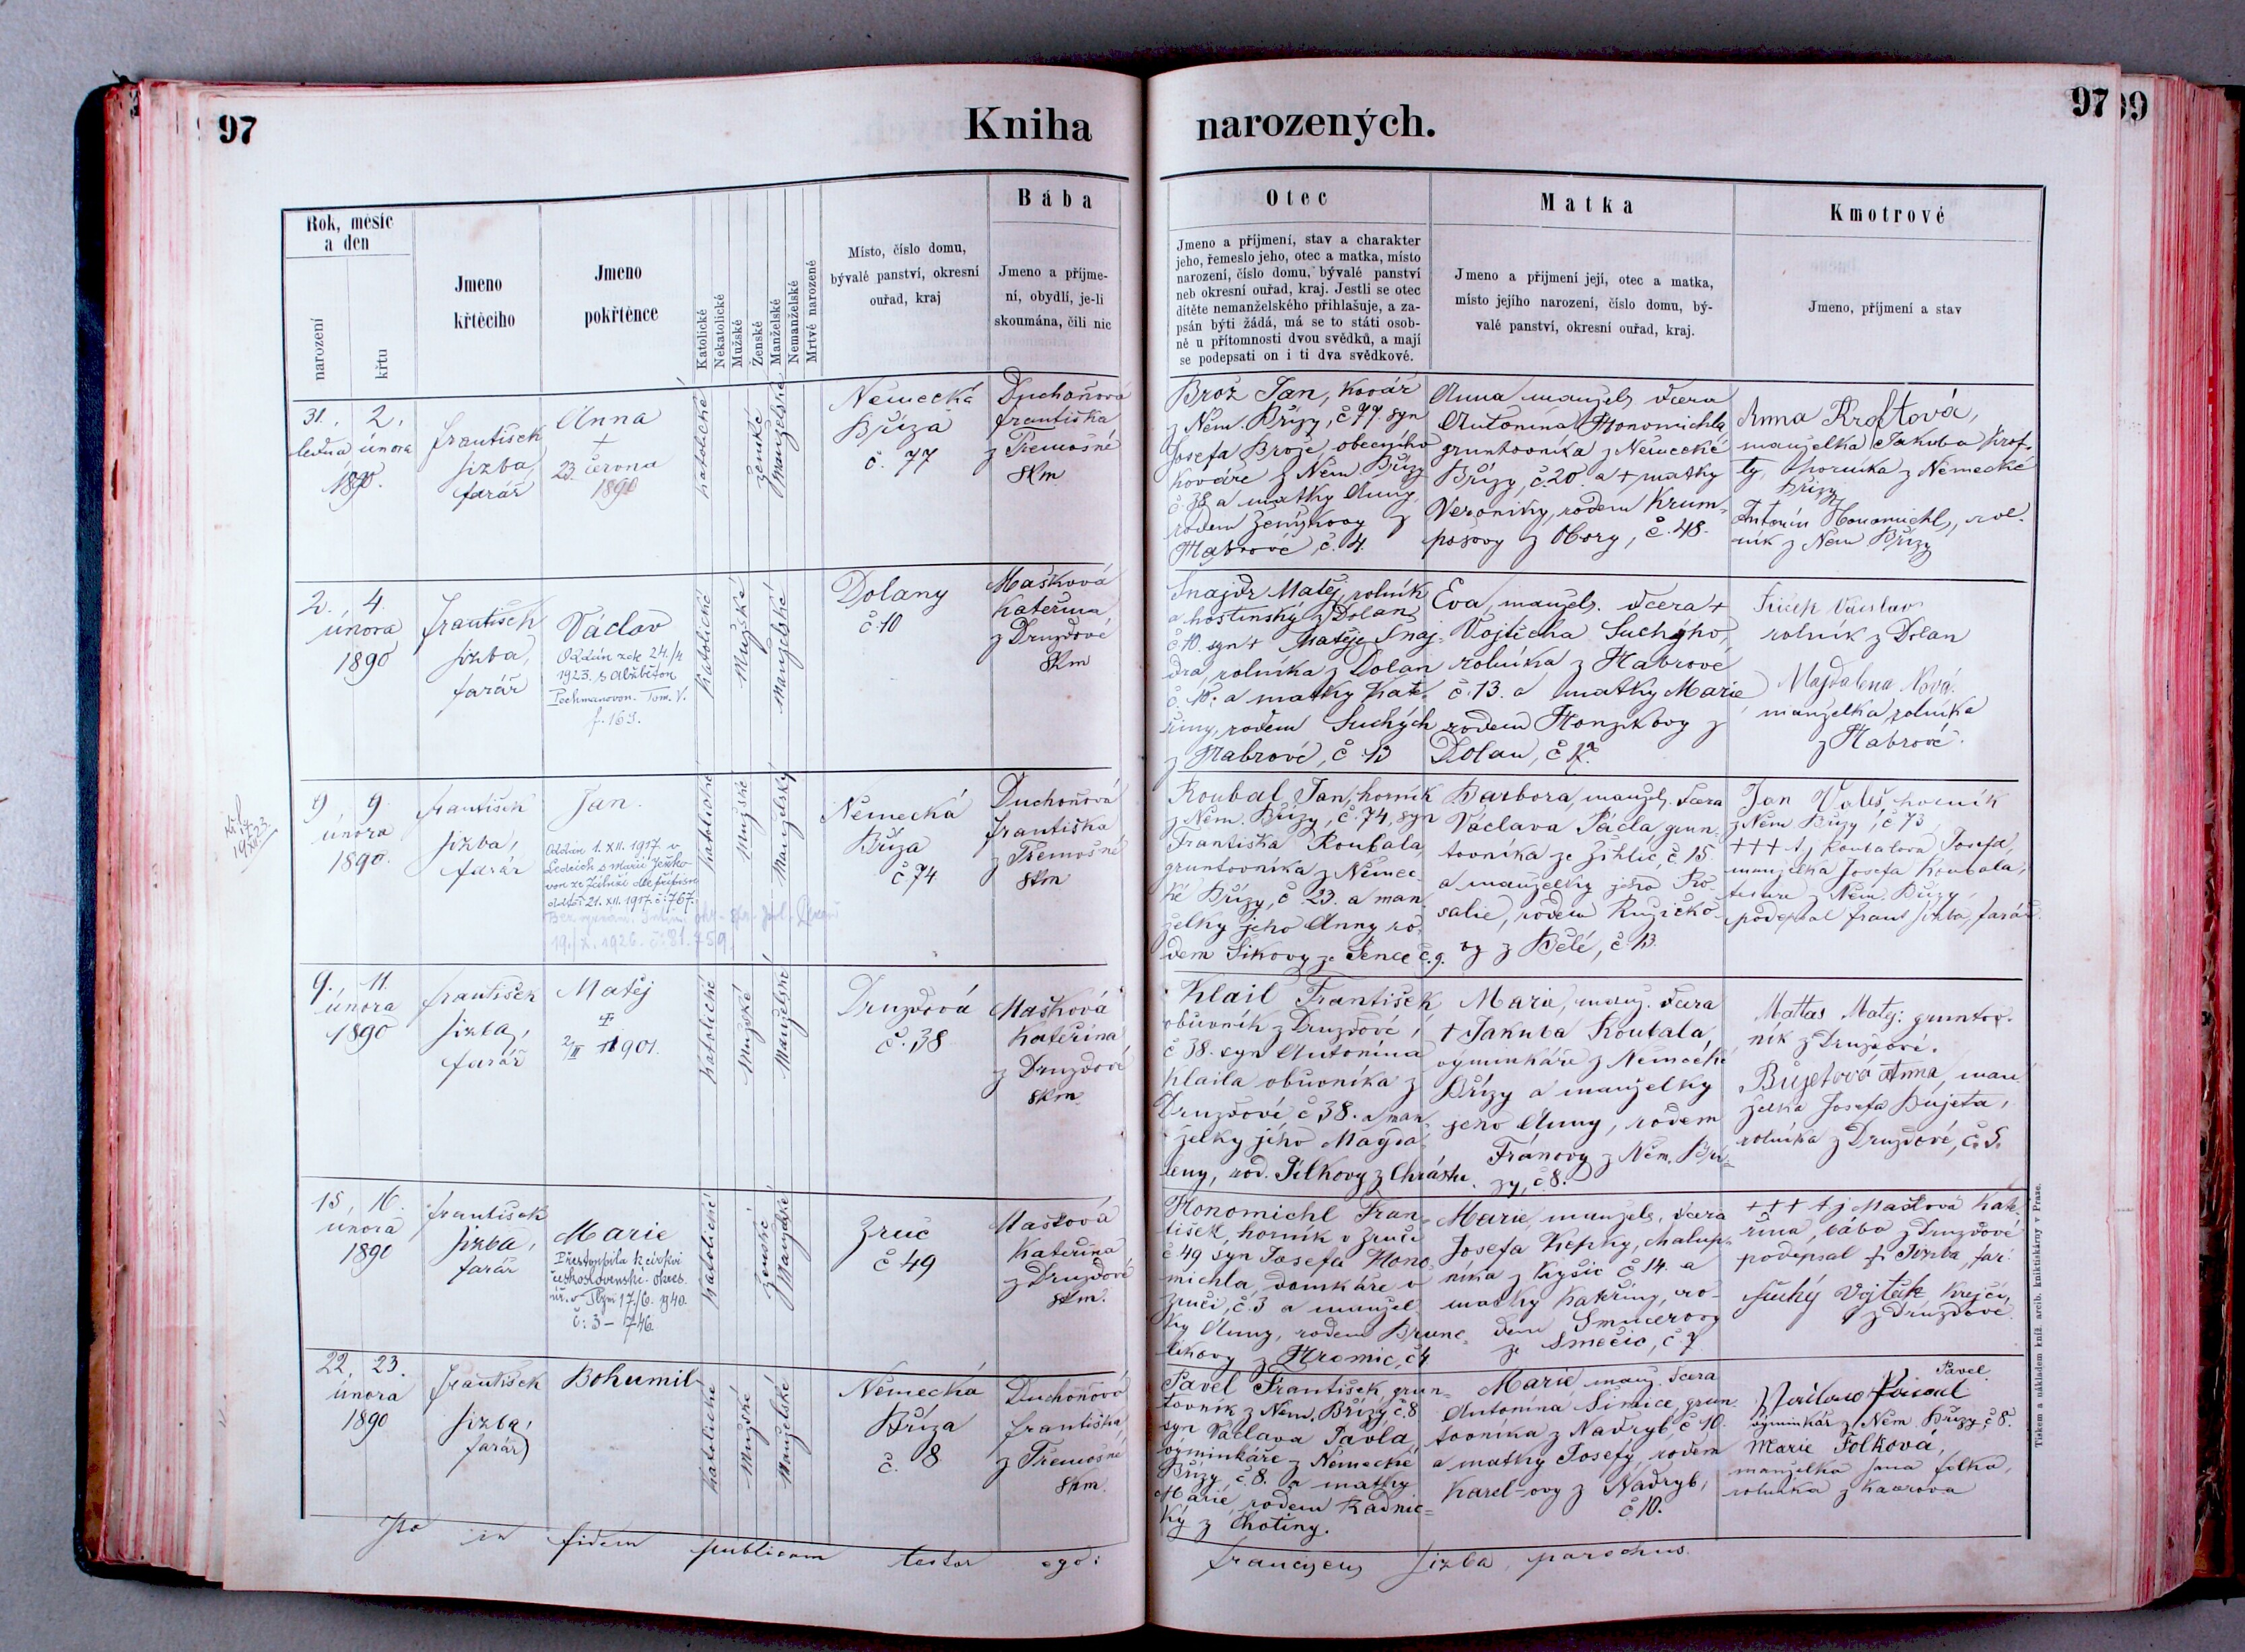 97
Kniha
narozených.
97
99
Rok, měsíc
a den
narození
křtu
Jmeno
křtěcího
Jmeno
pokřtěnce
Katolické
Nekatolické
Mužské
Ženské
Manželské
Nemanželské
Mrtvě narozené
Místo, číslo domu,
bývalé panství, okresní
ouřad, kraj
Bába
Jmeno a příjme-
ní, obydlí, je-li
skoumána, čili nic
Otec
Jmeno a přijmení, stav a charakter
jeho, řemeslo jeho, otec a matka, místo
narození, číslo domu, bývalé panství
neb okresní ouřad, kraj. Jestli se otec
dítěte nemanželského přihlašuje, a za-
psán býti žádá, má se to státi osob-
ně u přítomnosti dvou svědků, a mají
se podepsati on i ti dva svědkové.
Matka
Jmeno a přijmení její, otec a matka,
místo jejího narození, číslo domu, bý-
valé panství, okresní ouřad, kraj.
Kmotrové
Jmeno, přijmení a stav
31. 2.
ledna února
1890.
František
Jizba,
farář
Anna
+
23. června
1890
katolické
ženské
manželské
Německá
Bříza
č. 77
Duchoňová
Františka
z Třemošné
zkm
Brož Jan, kovář
z Něm. Břízy, č. 77. syn
Josefa Brože, obecního
kováře z Něm. Břízy
č. 38 a matky Anny,
rodem Ženíškovy z
Habrové, č. 4.
Anna manžels. dcera
Antonína Honomichla,
gruntovníka z Německé
Břízy, č. 20. a + matky
Veroniky, rodem Krum-
posovy z Obory, č. 48.
Anna Kroftová,
manželka Jakuba Krof-
ty, horníka z Německé
Břízy
Antonín Honomichl, rol-
ník z Něm Břízy
2. 4.
února
1890
František
Jizba,
farář
Václav
Oddán zde 24./4
1923. s Alžbětou
Pechmanovou. Tom. V.
f. 163.
Katolické
Mužské
Manželské
Dolany
č. 10
Mašková
Kateřina
z Druzdové
zkm
Šnajdr Matěj, rolník
a hostinský z Dolan,
č. 10. syn + Matěje Šnaj-
dra, rolníka z Dolan
č. 10. a matky Kate-
řiny, rodem Suchých
z Habrové, č. 13
Eva, manžels. dcera +
Vojtěcha Suchýho,
rolníka z Habrové
č. 13. a matky Marie
rodem Honzíkovy z
Dolan, č. 12.
rolník z Dolan
Majdalena Nová.
manželka rolníka
z Habrové.
9. 9.
února
1890.
František
Jizba,
farář
Jan.
Oddán 1. XII. 1917. v
21. XII. 1917. č. 767.
19./X. 1926. č. 81.759.
katolické
Mužské
Manželský
Německá
Bříza
č. 74
Duchoňová
Františka
z Třemošné
zkm
Roubal Jan, horník
z Něm. Břízy, č. 74, syn
Františka Roubala,
gruntovníka z Němec-
ké Břízy, č. 23. a man-
želky jeho Anny ro-
dem Šikovy ze Žence č. 9.
Barbora, manžels. dcera
Václava Pácla, grun-
tovníka ze Žihlic, č. 15.
a manželky jeho Ro-
salie, rodem Ružičko-
vy z Bělé, č. 13.
Jan Valeš, horník
z Něm Břízy, č. 73
+++ t.j Roubalova Josefa,
manželka Josefa Roubala,
tesaře z Něm. Břízy,
podepsal Frant Jizba, farář
9. 11.
února
1890
František
Jizba,
farář
Matěj
2/II 1901.
katolické
Mužské
Manželské
Druzdová
č. 38
Mašková
Kateřina
z Druzdové
zkm
Klail František
obuvník z Druzdové,
č 38. syn Antonína
Klaila obuvníka z
Druzdové č 38. a man-
želky jeho Magda-
leny, rod. Pilkovy z Chrástu.
Maria, manž. dcera
+ Jakuba Roubala
výminkáře z Německé
Břízy a manželky
jeho Anny, rodem
Fránovy z Něm. Bří-
zy, č. 8.
Mattas Matěj: gruntov-
ník z Druzdové.
Bujetová Anna man-
želka Josefa Bujeta,
rolníka z Druzdové, č. 5.
15. 16.
února
1890
František
Jizba,
farář
Marie
Přestoupila k církvi
československé. Okres.
úř. v Plzni 17./6. 1940.
č: 3 - 746
katolické
ženské
Manželské
Zruč
č 49
Mašková
Kateřina
z Druzdové
zkm.
Honomichl Fran-
tišek, horník v Zruči
č 49 syn Josefa Hono-
michla, domkáře v
Zruči, č. 3 a manžel-
ky Anny, rodem Brune-
líkovy z Hromic, č 4
Marie, manžels. dcera
Josefa Kepky, chalup-
níka z Kyšic č. 14. a
matky Kateřiny, ro-
dem Šmucrovy
ze Smědčic, č. 7
+++ t.j Mašková Kate-
řina, bába z Druzdové
podepsal Fr Jizba, far:
Suchý Vojtěch Krejčí,
z Druzdové
22. 23.
února
1890
František
Jizba,
farář
Bohumil
katolické
Mužské
Manželské
Německá
Bříza
č. 8
Duchoňová
Františka
z Třemošné
zkm.
Pavel František, grun-
tovník z Něm. Břízy č. 8
syn Václava Pavla
výminkáře z Německé
Břízy č. 8. a matky
Marie, rodem Radnic-
ký z Chotiny.
Marie manž. dcera
Antonína Šimice, grun-
tovníka z Nadryb, č 10.
a matky Josefy, rodem
Karel-ovy z Nadryb,
č. 10.
Pavel
výminkář z Něm. Břízy č 8.
Marie Folková,
manželka Jana Folka,
rolníka z Kaceřova
Ita in fidem publicam testor ego: Franciscus Jizba, parochus.
Tiskem a nákladem kníž. arcib. knihtiskárny v Praze.